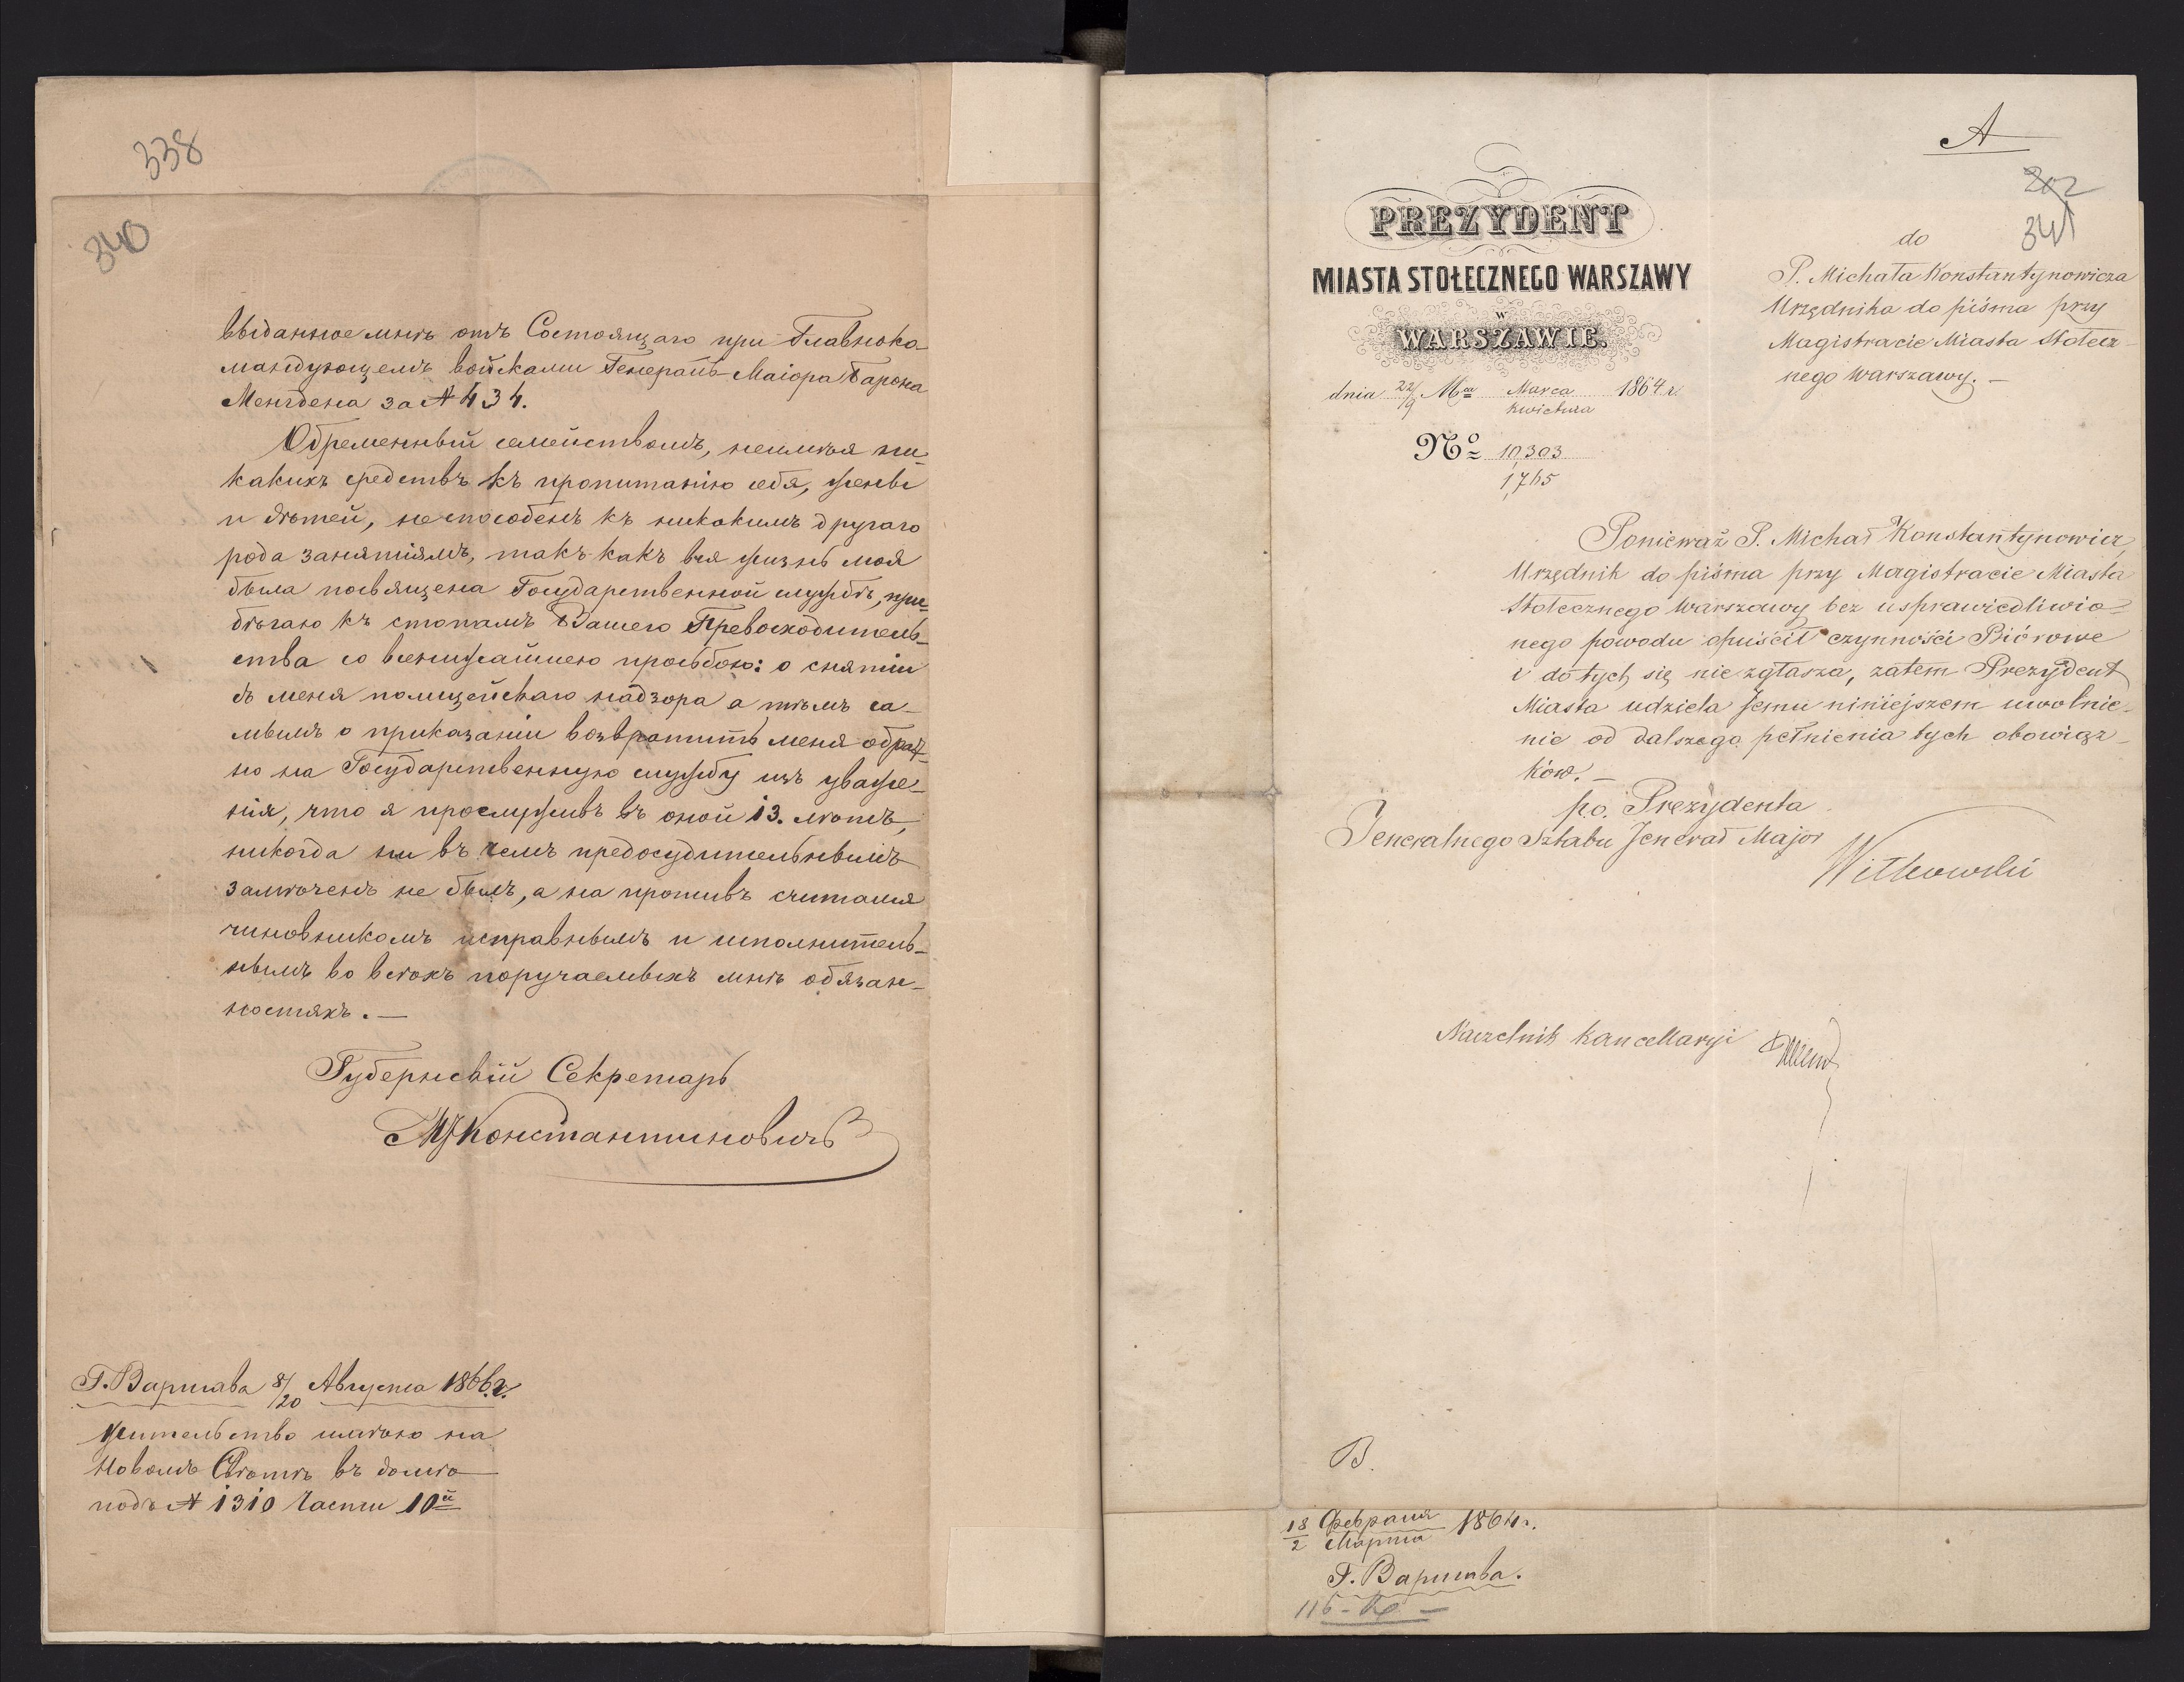 338
340
выданное мнѣ отъ Состоящаго при Главноко-
мандующемъ войсками Генералъ-Маіора Барона
Менгдена за № 434.
Обремененный семействомъ, неимѣя ни-
какихъ средствъ къ пропитанію себя, жены
и дѣтей, неспособенъ къ никакимъ другаго
рода занятіямъ, такъ какъ вся жизнь моя
была посвящена Государственной службѣ, при-
бѣгаю къ стопамъ Вашего Превосходитель-
ства со всенижайшею просьбою: о снятіи
съ меня полицейскаго надзора а тѣмъ са-
мымъ о приказаніи возвратить меня обрат-
но на Государственную службу изъ уваже-
нія, что я прослуживъ въ оной 13. лѣтъ,
никогда ни въ чемъ предосудительнымъ
замѣченъ не былъ, а на противъ считался
чиновникомъ исправнымъ и исполнитель-
нымъ во всѣхъ поручаемыхъ мнѣ обязан-
ностяхъ. —
Губернскій Секретарь
М Константиновичъ
Г. Варшава 8/20 Августа 1866 г.
Жительство имѣю на
Новомъ Свѣтѣ въ домѣ
подъ № 1310 Части 10й
A
202
341
PREZYDENT
MIASTA STOŁECZNEGO WARSZAWY
W
WARSZAWIE.
dnia 22/9 Mca Marca 1864 r.
Kwietnia
No 10,303
1,765
do
P. Michała Konstantynowicza
Urzędnika do piśma przy
Magistracie Miasta Stołecz-
nego Warszawy. —
Ponieważ P. Michał Konstantynowicz,
Urzędnik do piśma przy Magistracie Miasta
Stołecznego Warszawy bez usprawiedliwio-
nego powodu opuścił czynności Biórowe
i do tych się nie zgłasza, zatem Prezydent
Miasta udziela Jemu niniejszem uwolnie-
nie od dalszego pełnienia tych obowiąz-
ków. —
p.o. Prezydenta
Jeneralnego Sztabu Jenerał Major
Witkowski
Naczelnik Kancellaryi
B.
18/2 Февраля/Марта 1864 г.
Г. Варшава.